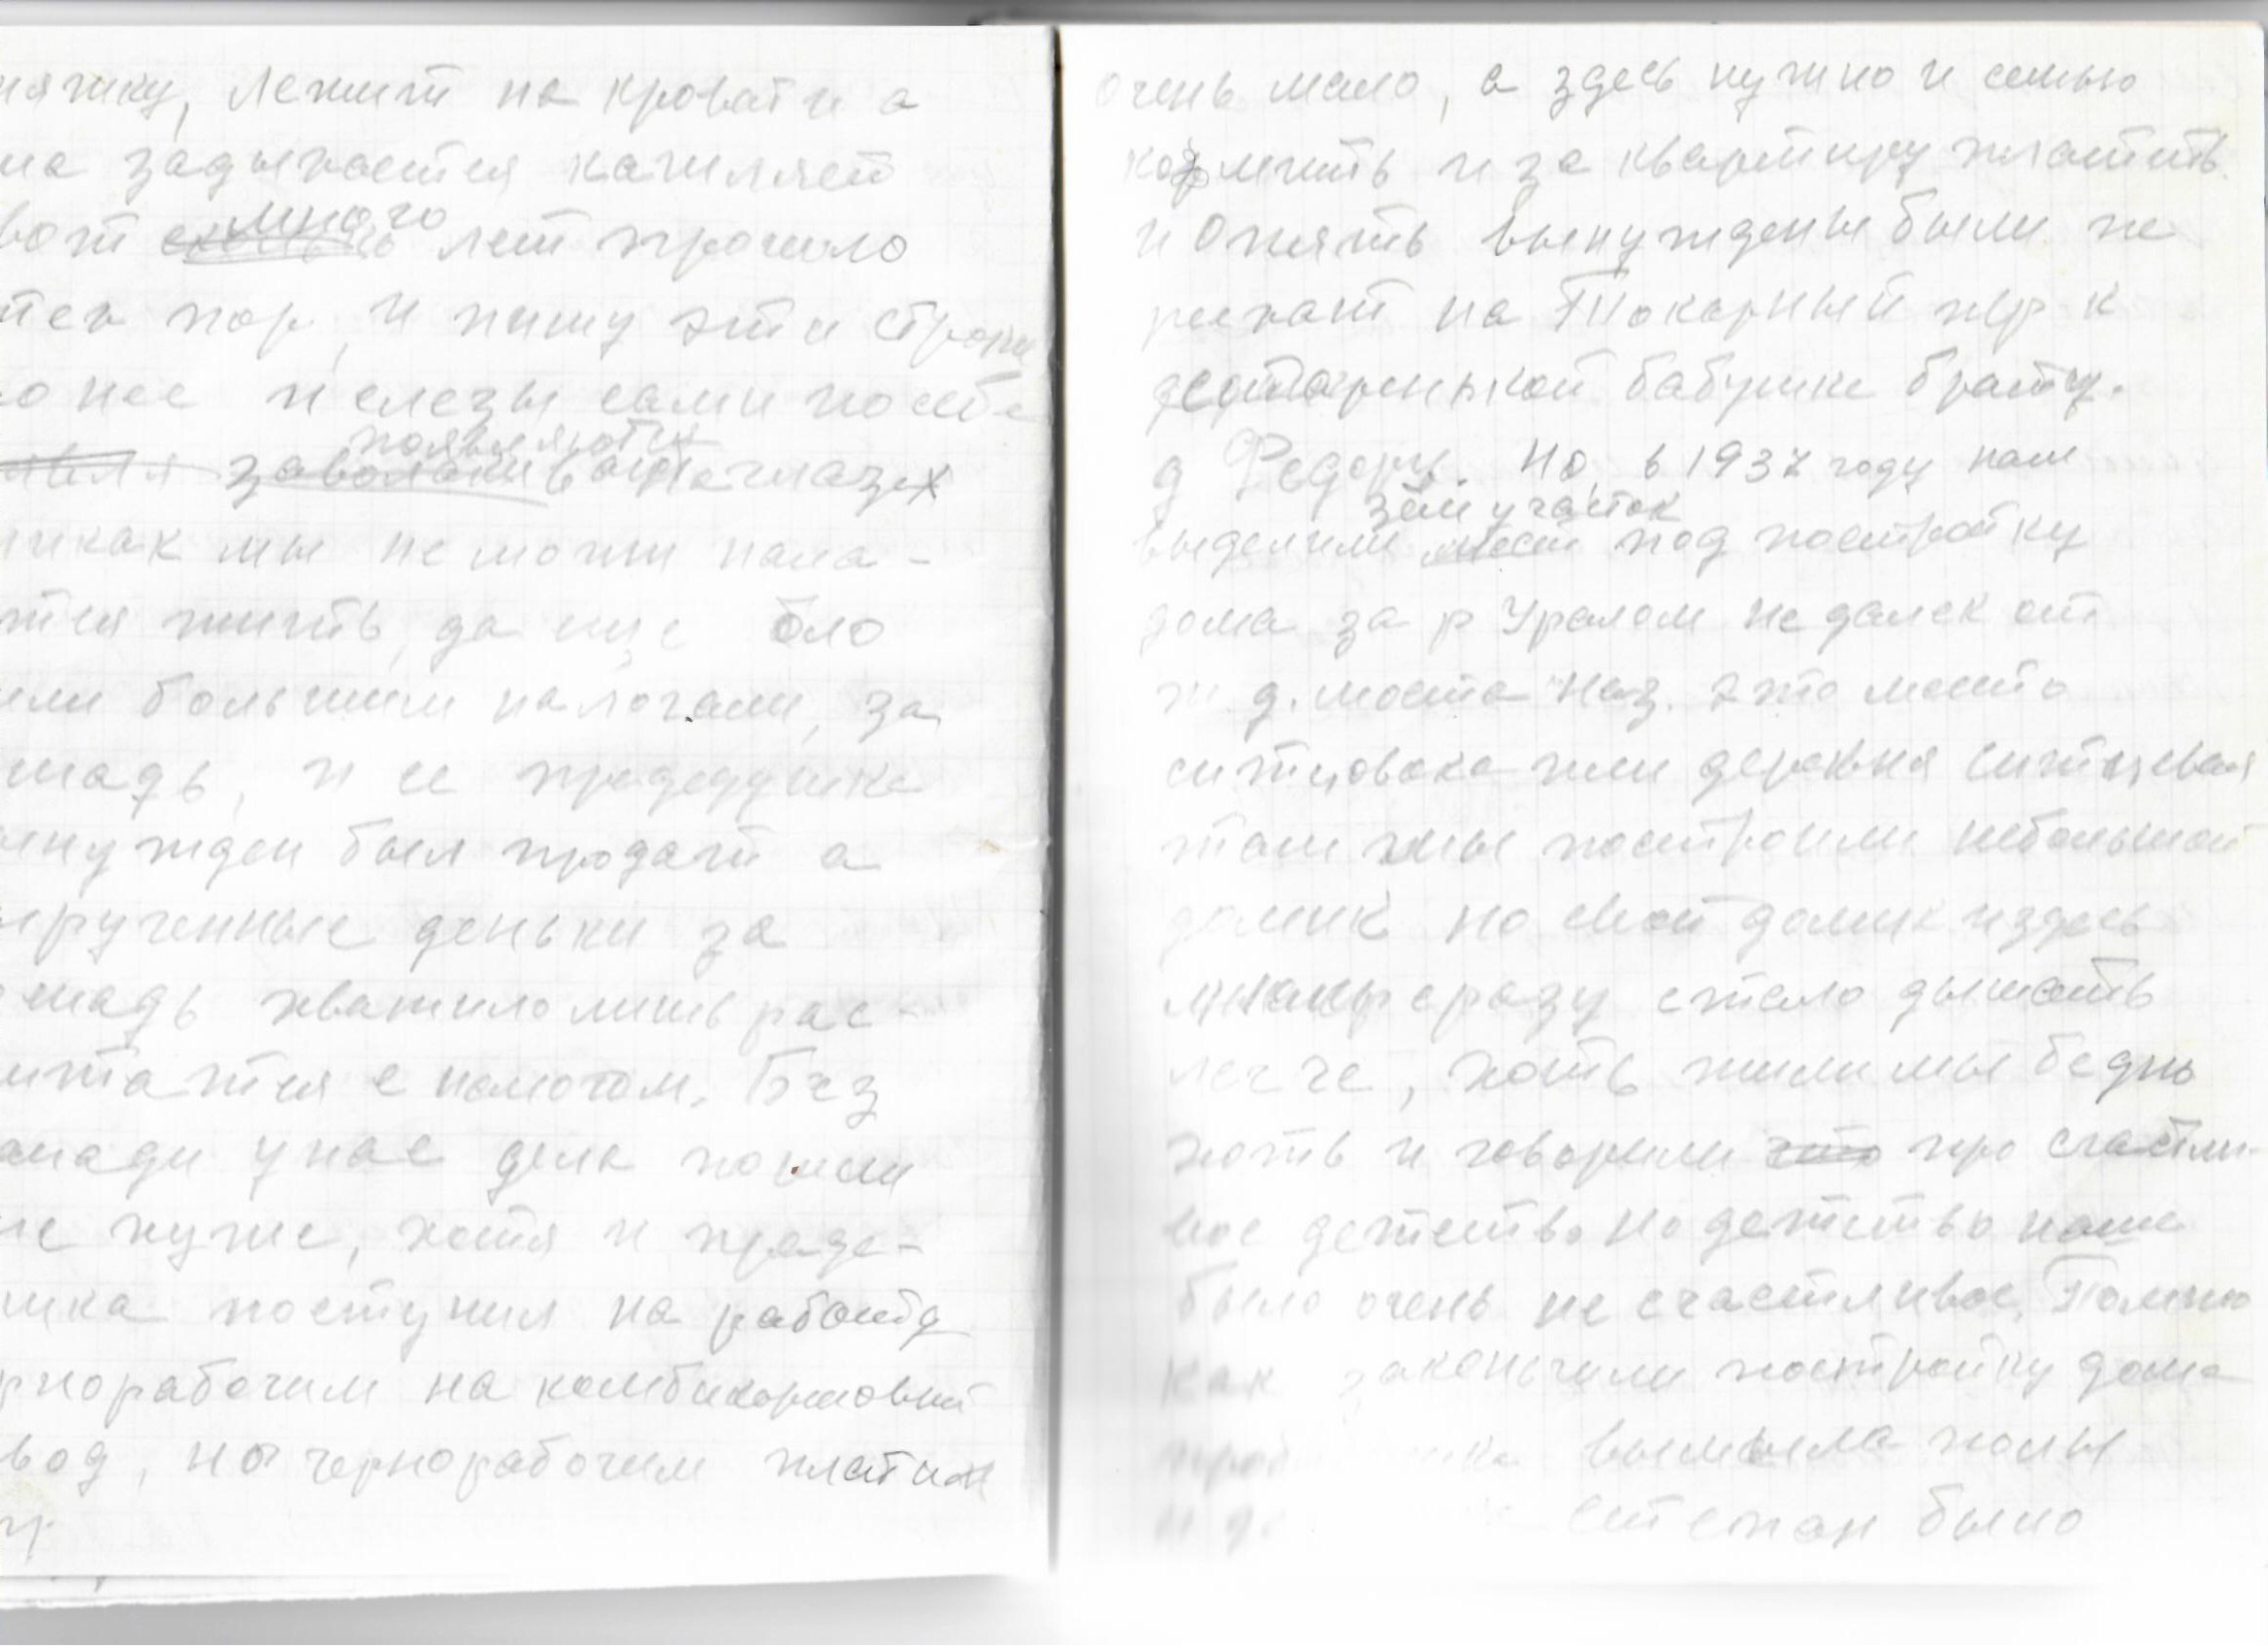 няжку, лежит на кровати а
на задыхается кашляет
вот много лет прошло
тех пор, и пишу эти строки
о нее и слезы сами по себе
появляются на глазах
никак мы не могли нала-
тся жить, да еще бло
или большим налогами, за
шадь, и ее прадедушка
ынужден был продат а
ырученные деньки за
шадь хватило лишь рас-
итатся с налогом. Без
ошади у нас дела пошли
ще хуже, хотя и праде-
шка поступил на работу
рнорабочим на комбикормовый
вод, но чернорабочим платили
очень мало, а здесь нужно и семью
кормить и за квартиру платить.
и опять вынуждены были пе
реехат на Токарный пер к
де старенькой бабушке брату.
д Федору. Но в 1937 году нам
выделили зем участок под постройку
дома за р Уралом не далек от
ж. д. моста наз. это место
ситцовака или деревня ситцевая
там мы построили небольшой
домик но свой домик и здесь
сразу стало дышать
легче, хоть жили мы бедно
хоть и говорили про счастли-
вое детство но детство наше
было очень не счастливое, Помню
как законьчили постройку дома
вымыла полы
стенах было